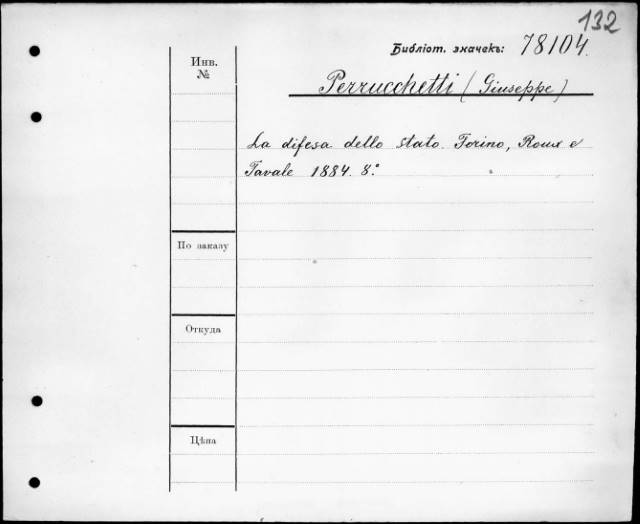 132
Библіот. значекъ: 78104.
Инв.
№
Perrucchetti (Giuseppe)
La difesa dello stato. Torino, Roux e
Favale 1884. 8.º
По заказу
Откуда
Цѣна